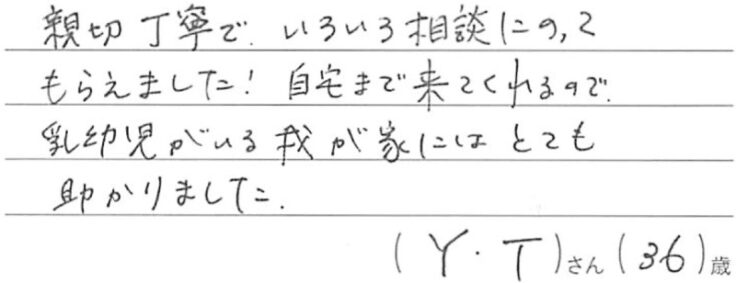 親切丁寧で、いろいろ相談にのって
もらえました！自宅まで来てくれるので、
乳幼児がいる我が家にはとても
助かりました。
(Y・T)さん(36)歳